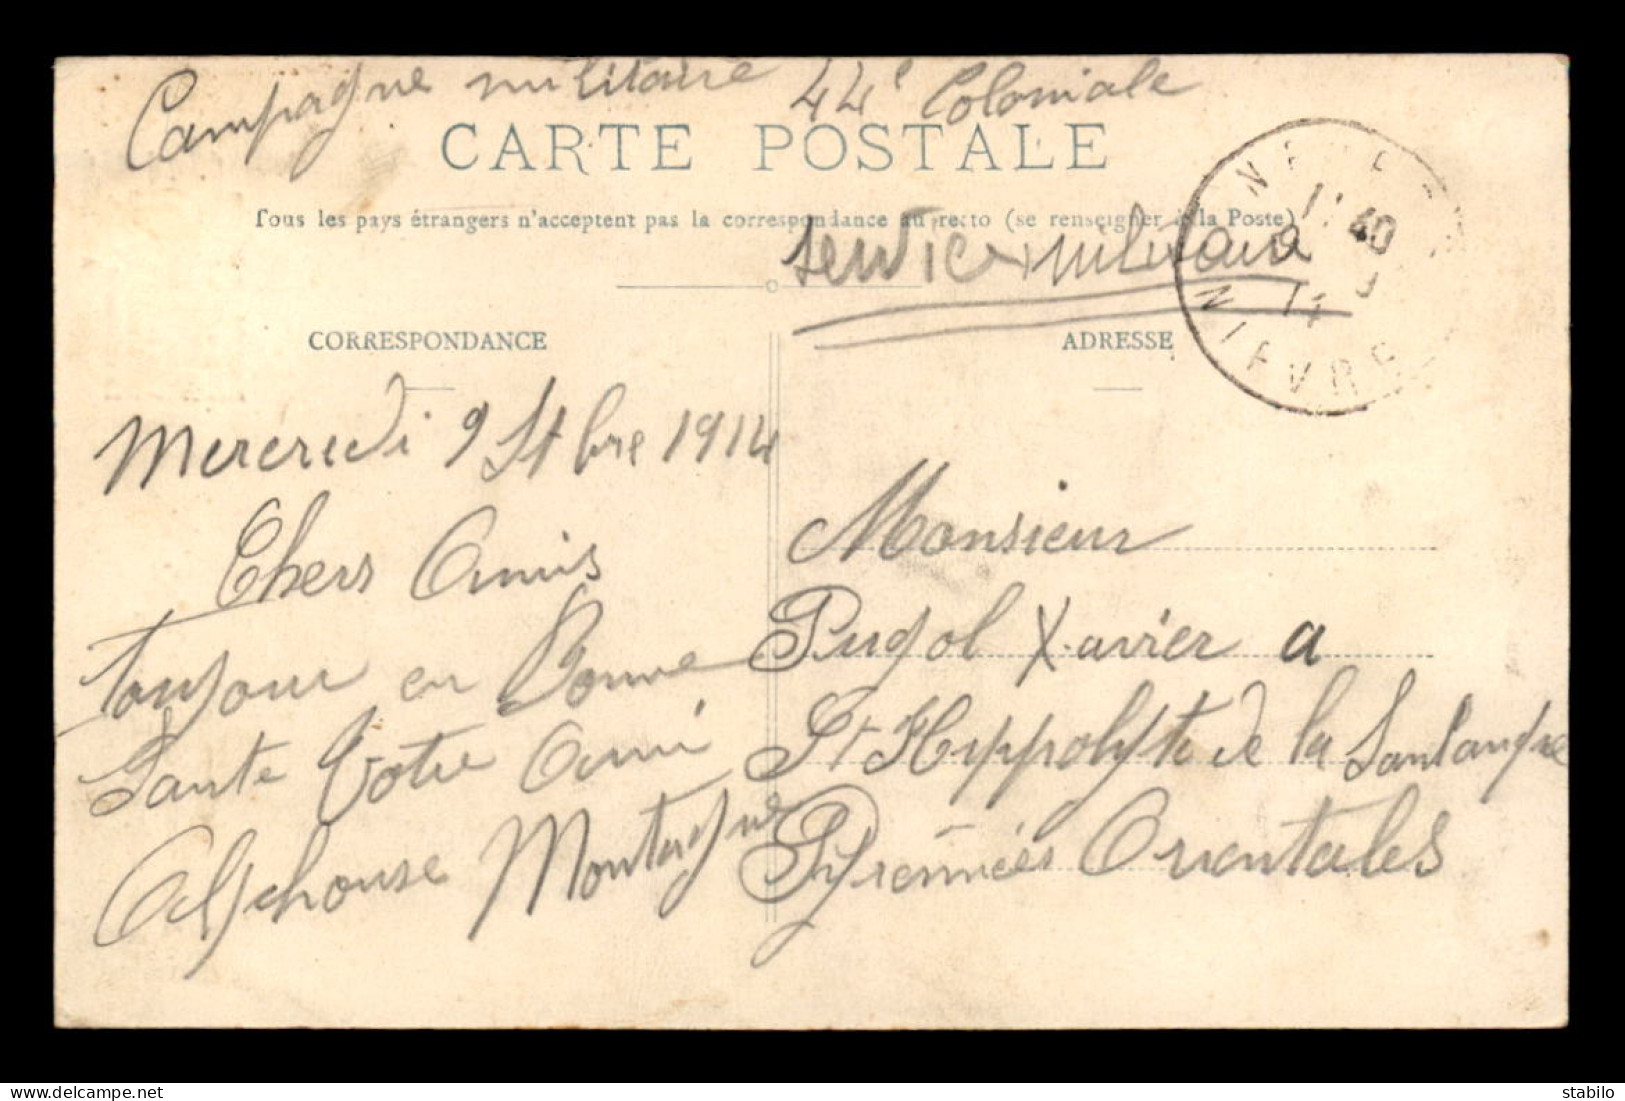 Campagne militaire 44e Coloniale
CARTE POSTALE
Tous les pays étrangers n'acceptent pas la correspondance au recto (se renseigner à la Poste)
service militaire
CORRESPONDANCE
Mercredi 9 Stbre 1914
Chers Amis
toujour en Bonne
Sante Votre Ami
Alphonse Montagne
ADRESSE
Monsieur
Pujol Xavier a
St Hippolyte de la Sanlanque
Pyrennées Orientales
NIEVRE
delcampe.net
stabilo